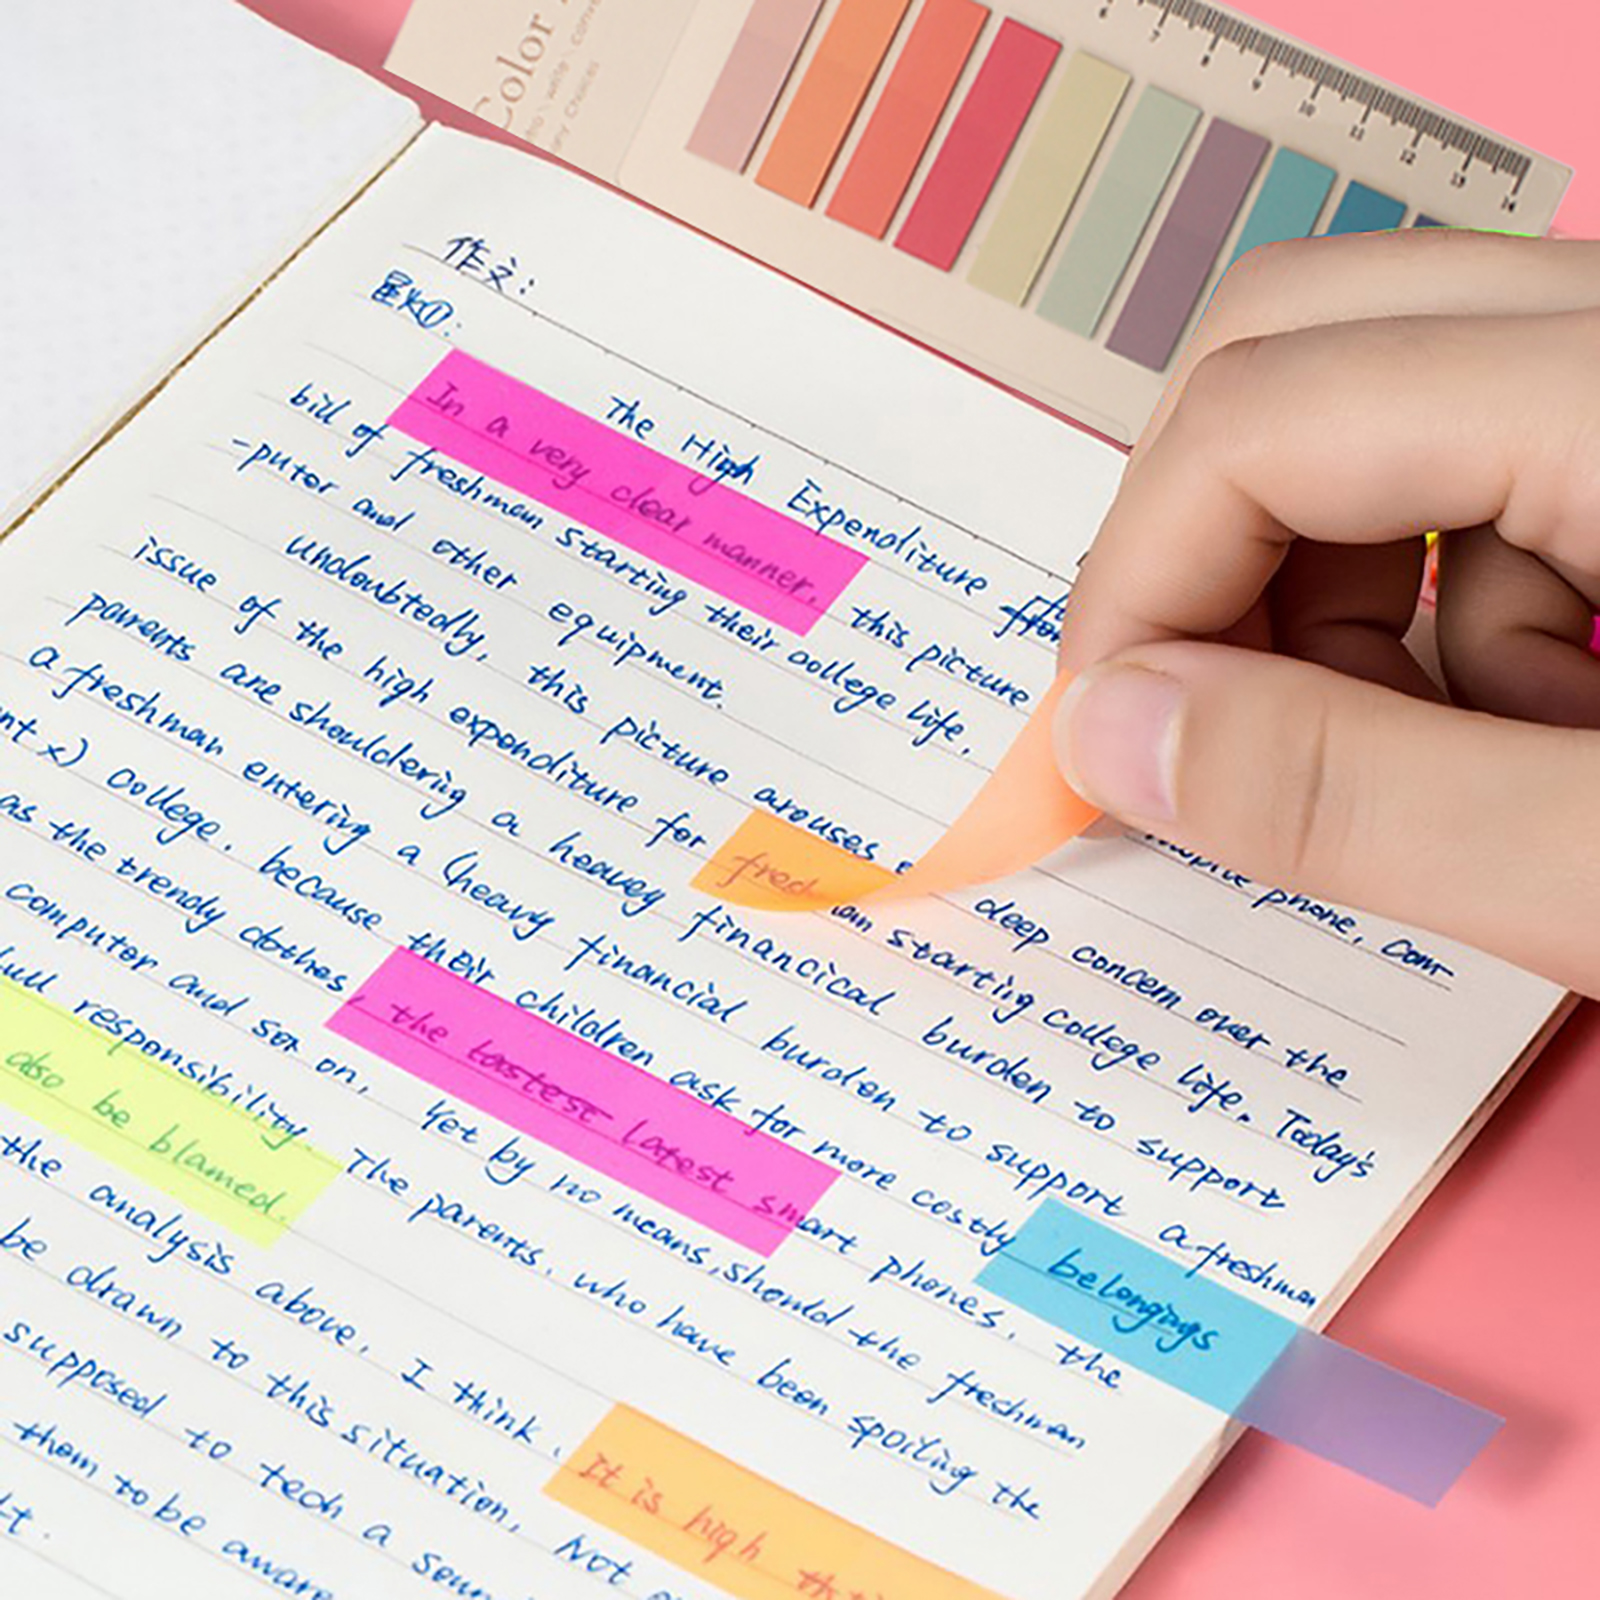 Color
作文:
星火①:
The High Expenditure for
In a very clear manner, this picture
bill of freshman starting their college life, phone, com
-puter and other equipment.
Undoubtedly, this picture arouses deep concern over the
issue of the high expenditure for freshman starting college life. Today's
parents are shouldering a heavey financical burden to support
a freshman entering a (heavy financial burden to support a freshman
nt x) college. because their children ask for more costly belongings
as the trendy clothes, the tastest latest smart phones, the
computer and so on, Yet by no means, should the freshman
full responsibility. The parents, who have been spoiling the
also be blamed.
the analysis above, I think, It is high
be drawn to this situation, Not
supposed to tech a
them to be aware
6 7 8 9 10 11 12 13 14